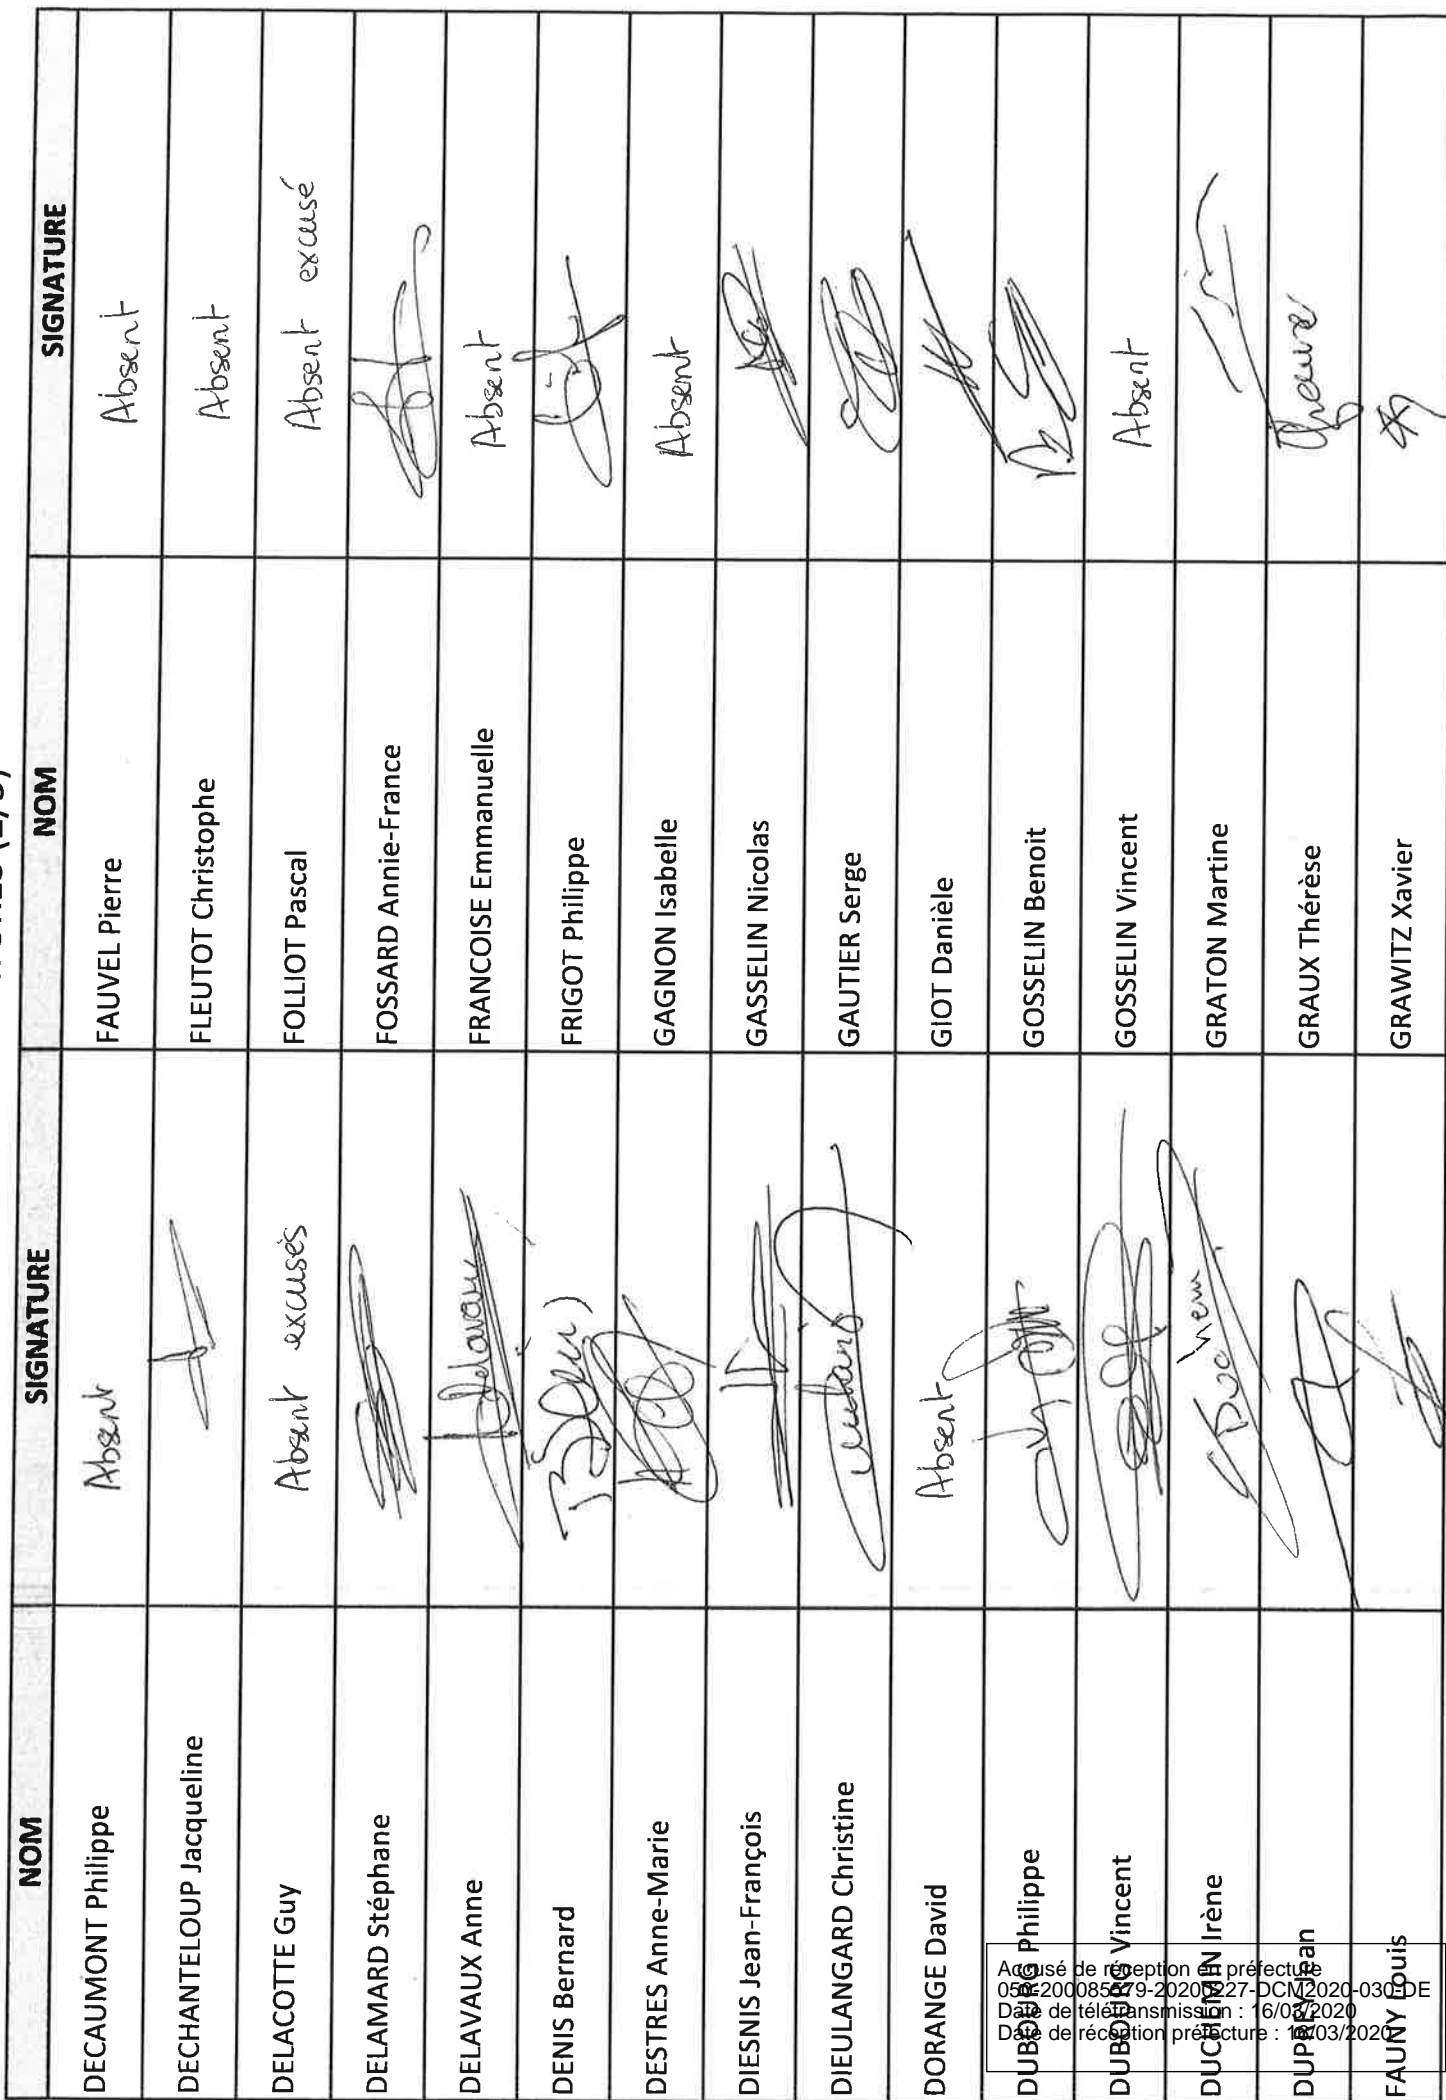 NOM SIGNATURE NOM SIGNATURE
DECAUMONT Philippe Absent FAUVEL Pierre Absent
DECHANTELOUP Jacqueline FLEUTOT Christophe Absent
DELACOTTE Guy Absent excusés FOLLIOT Pascal Absent excusé
DELAMARD Stéphane FOSSARD Annie-France
DELAVAUX Anne Delavaux FRANCOISE Emmanuelle Absent
DENIS Bernard FRIGOT Philippe
DESTRES Anne-Marie GAGNON Isabelle Absent
DIESNIS Jean-François GASSELIN Nicolas
DIEULANGARD Christine GAUTIER Serge
DORANGE David Absent GIOT Danièle
DUBOURG Philippe GOSSELIN Benoit
DUBOURG Vincent GOSSELIN Vincent Absent
DUCHEMIN Irène GRATON Martine
DUPREY Jean GRAUX Thérèse
FAUNY Louis GRAWITZ Xavier
Accusé de réception en préfecture
050-200085579-20200227-DCM2020-030-DE
Date de télétransmission : 16/03/2020
Date de réception préfecture : 16/03/2020